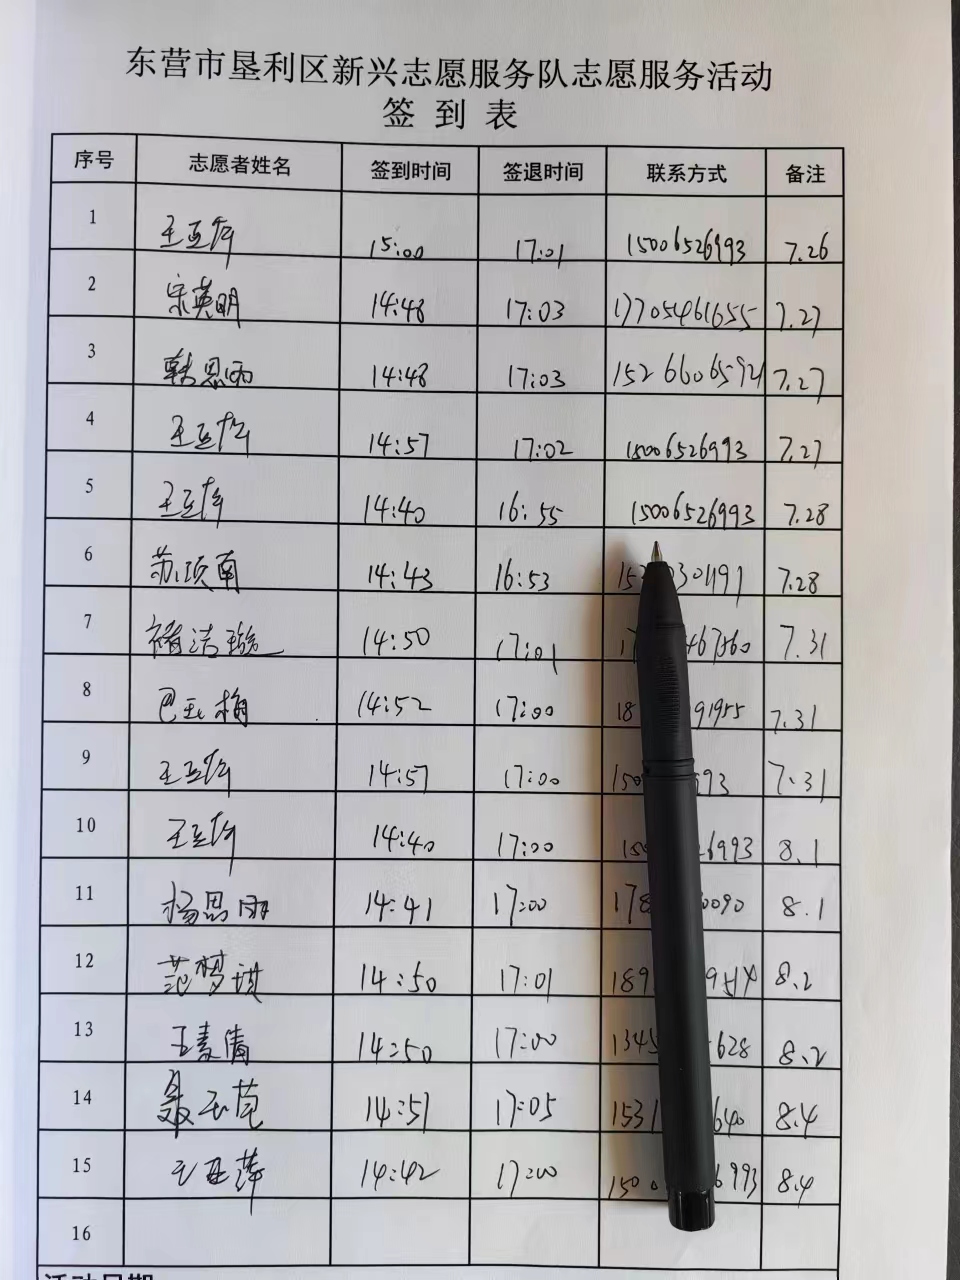 东营市垦利区新兴志愿服务队志愿服务活动
签到表
序号 志愿者姓名 签到时间 签退时间 联系方式 备注
1 王亚萍 15:00 17:01 15006526993 7.26
2 宋英明 14:48 17:03 17705461655 7.27
3 韩思雨 14:48 17:03 15266606592 7.27
4 王亚萍 14:57 17:02 15006526993 7.27
5 王亚萍 14:40 16:55 15006526993 7.28
6 苏项南 14:43 16:53 7.28
7 褚洁璇 14:50 17:01 7.31
8 巴玉梅 14:52 17:00 18 91955 7.31
9 王亚萍 14:57 17:00 150 93 7.31
10 王亚萍 14:40 17:00 150 6993 8.1
11 杨思雨 14:41 17:00 178 0090 8.1
12 范梦琪 14:50 17:01 189 9514 8.2
13 王麦倩 14:50 17:00 1345 628 8.2
14 聂玉苞 14:51 17:05 1531 640 8.4
15 王亚萍 14:42 17:00 1500 6993 8.4
16